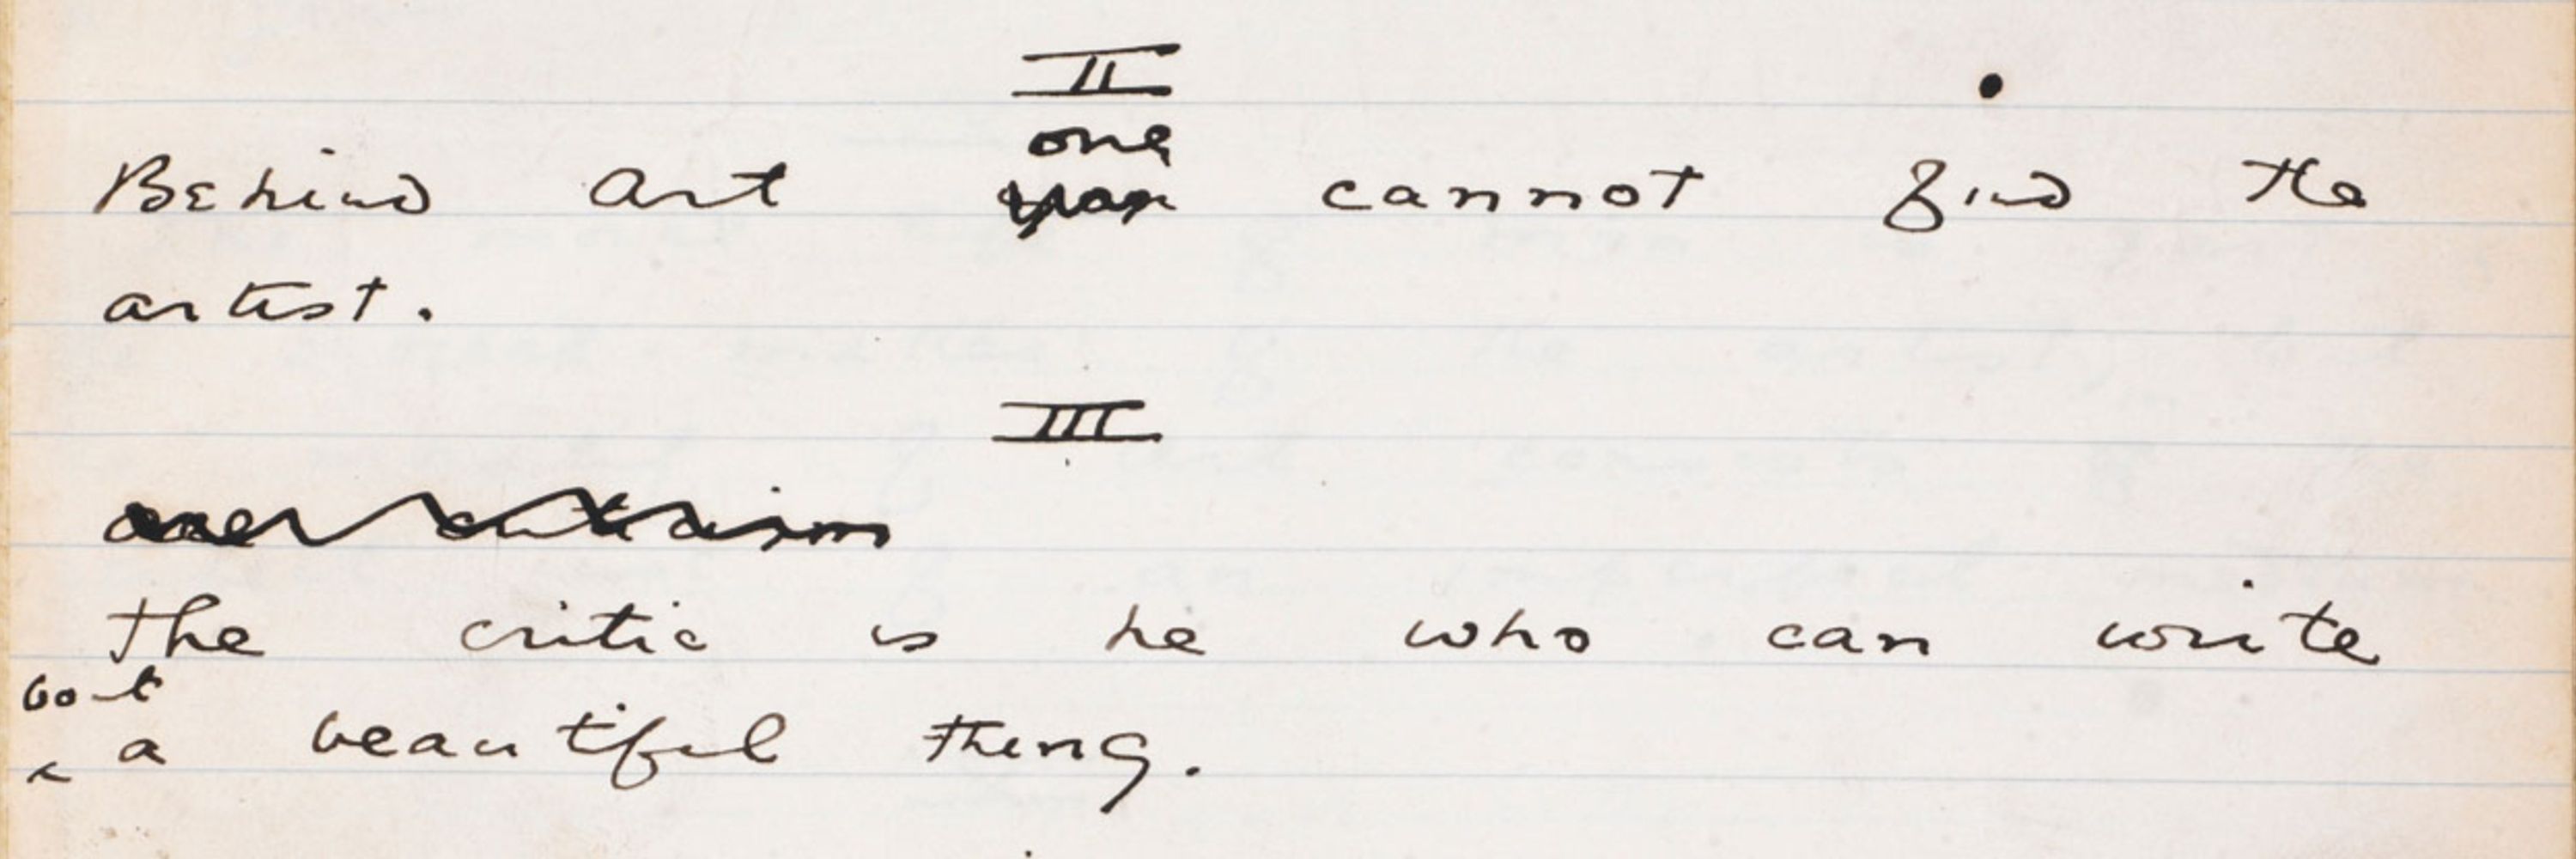 II
one
Behind Art you cannot find the
artist.
III
criticism
The critic is he who can write
bout
a beautiful thing.